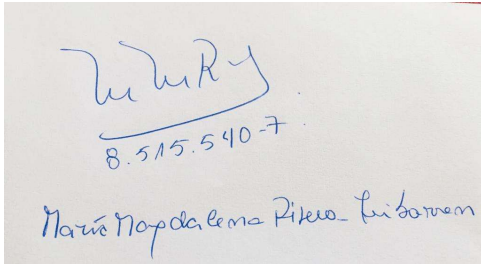 8.515.540-7
María Magdalena Rivera Iribarren